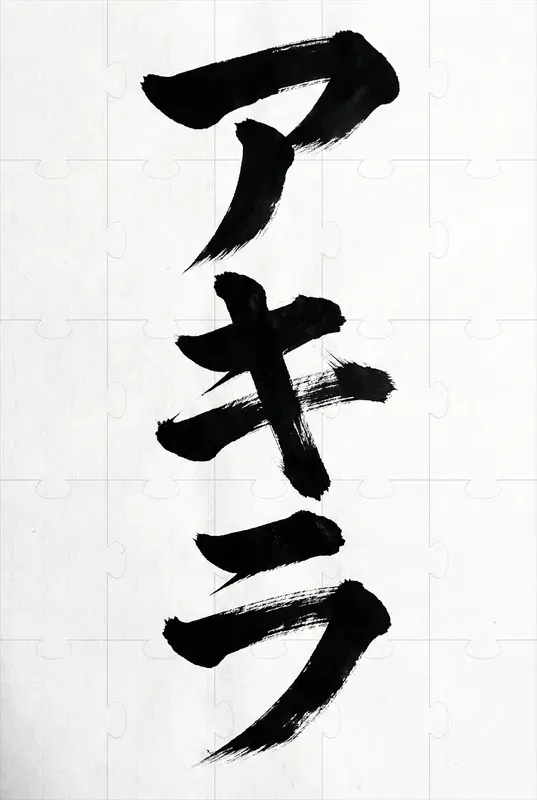 アキラ